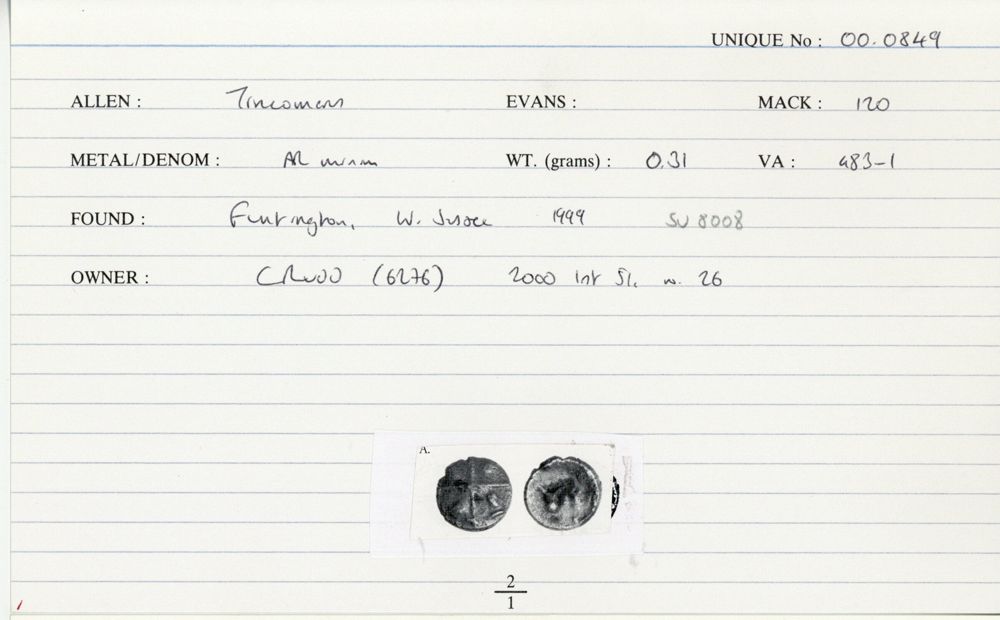 UNIQUE No : 00.0849
ALLEN : Tincomarus EVANS : MACK : 120
METAL/DENOM : AR minim WT. (grams) : 0.31 VA : 483-1
FOUND : Funtington, W. Sussex 1999 SU 8008
OWNER : C Rudd (6276) 2000 list 51, no. 26
A.
2
1